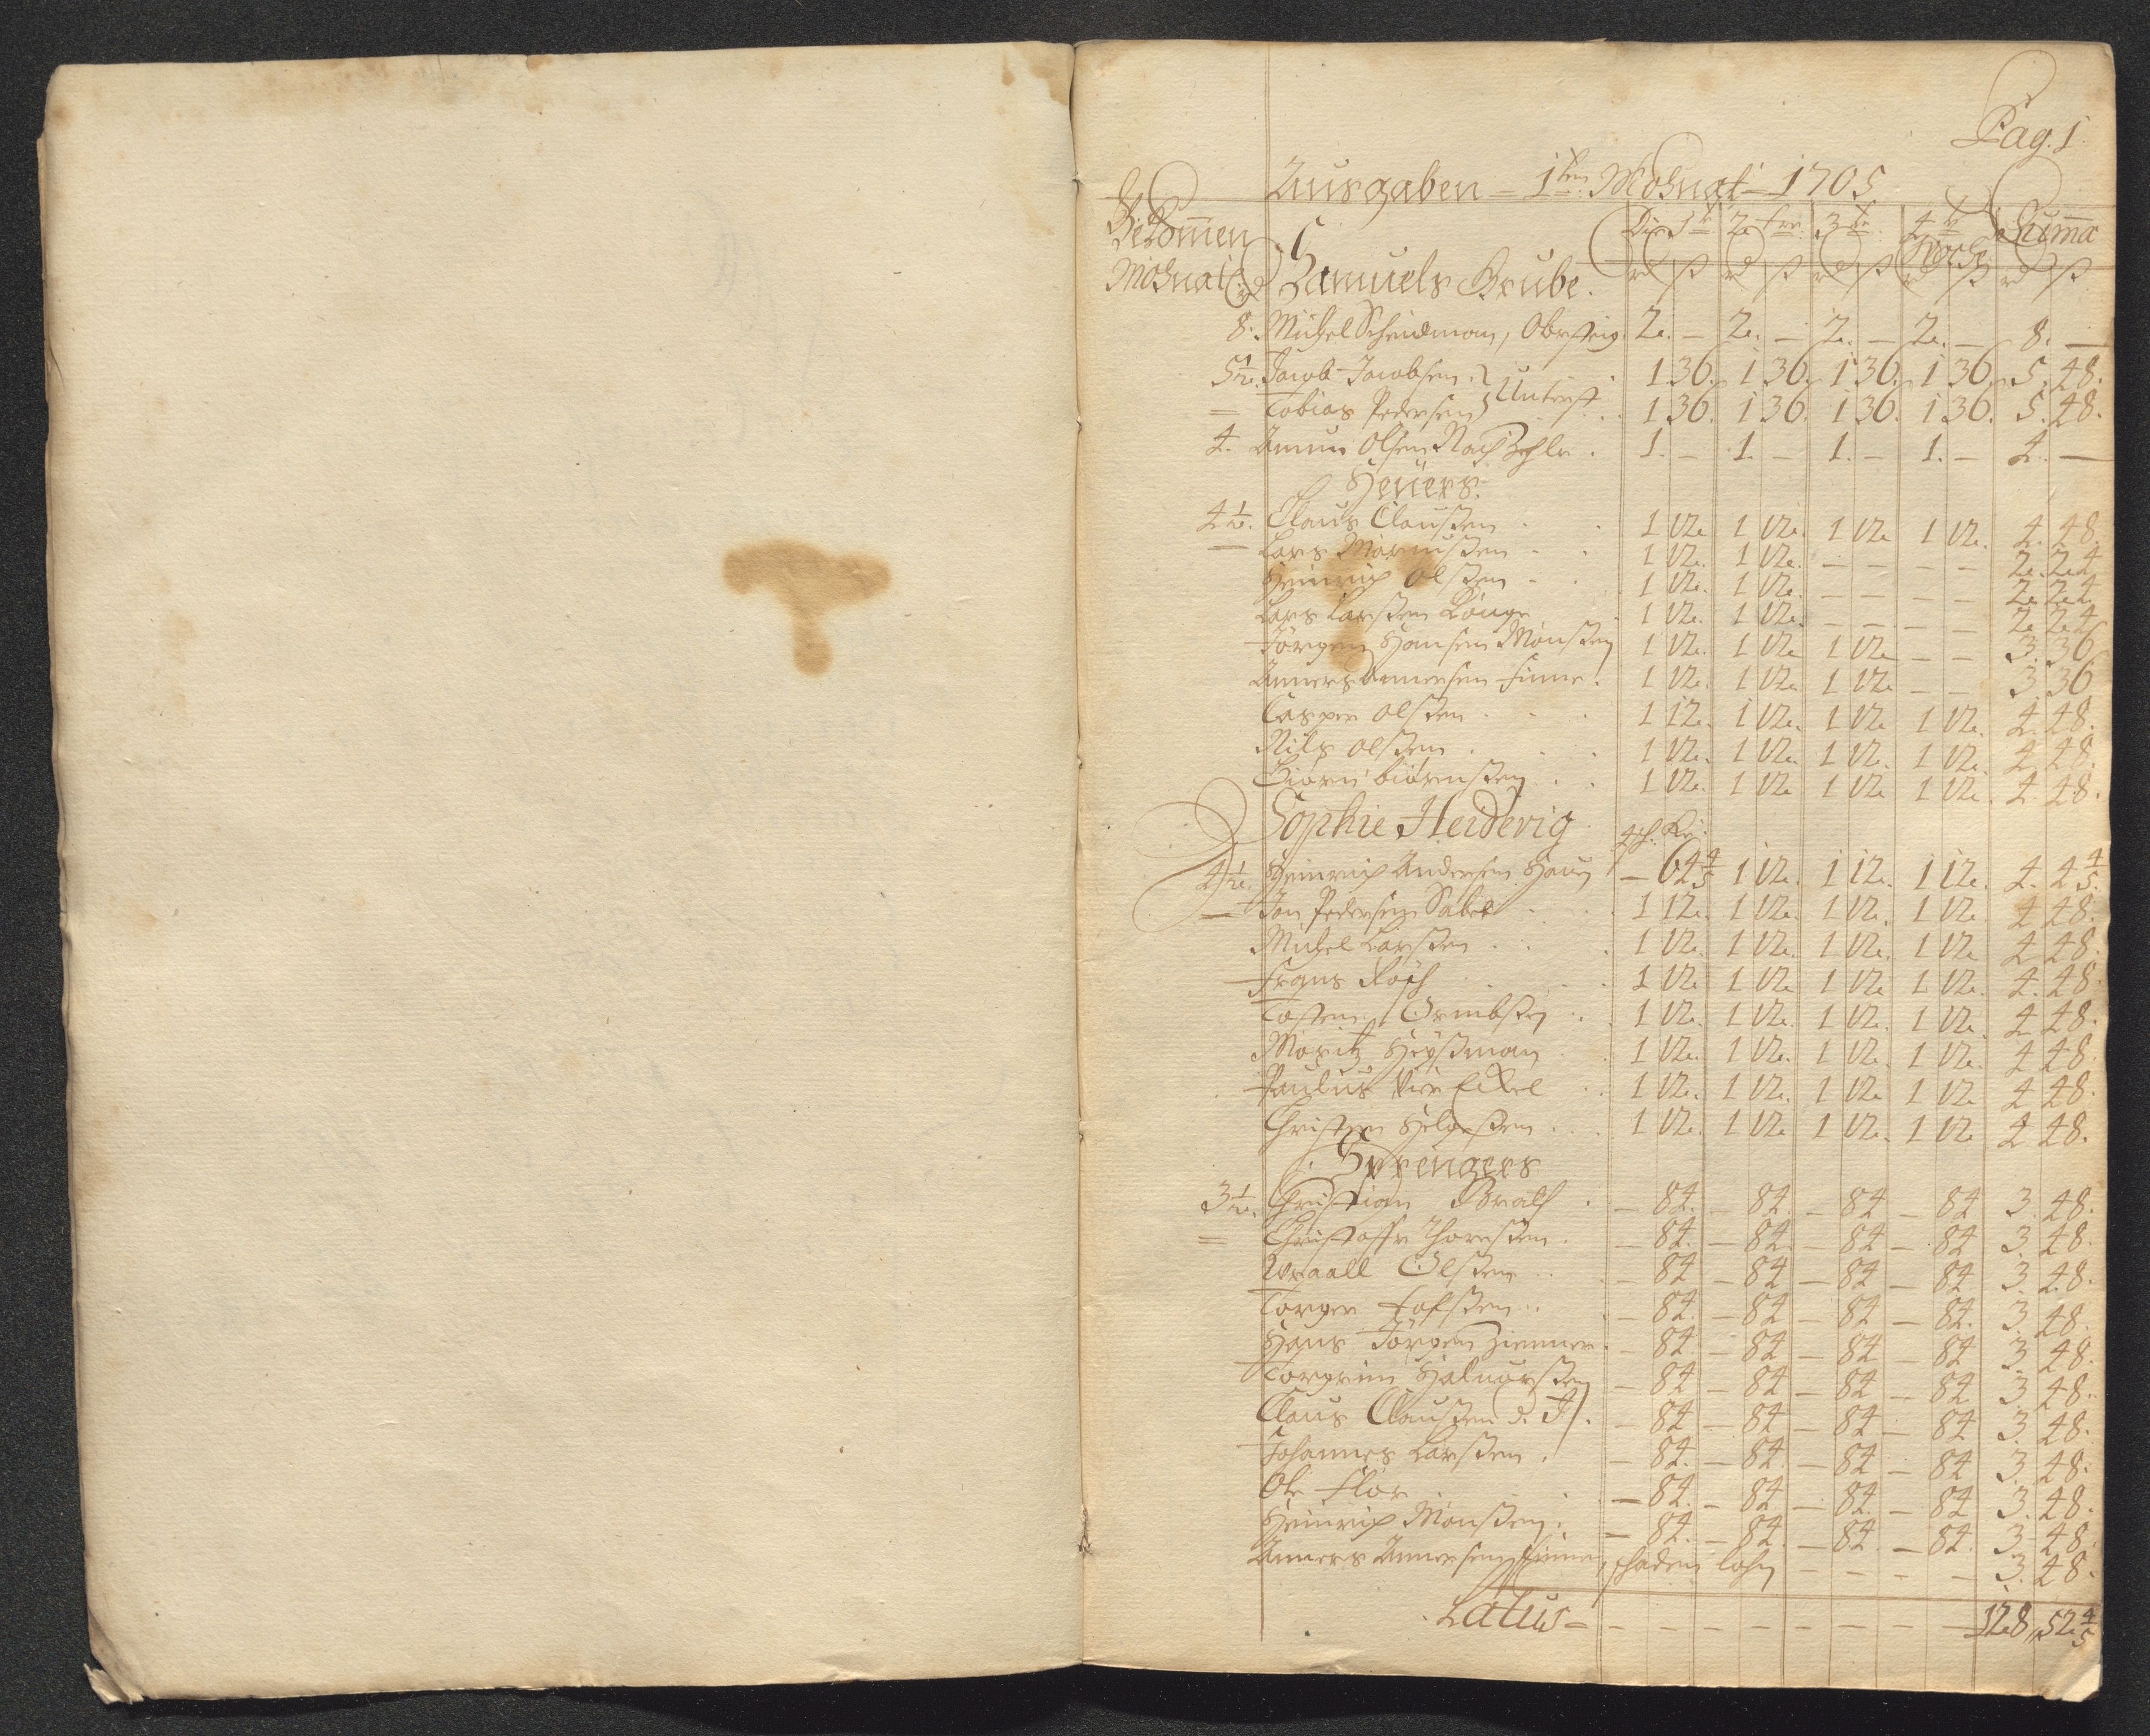 Pag. 1.
Ausgaben = 1ten Mohnat 1705
Bekom̅en Die 1te 2te 3te 4te Woche Sum̅a
Mohnatl. rd Samuels Grube. rd ß rd ß rd ß rd ß rd ß
8. Michel Scheidman, Obersteig. 2. – 2. – 2. – 2. – 8. –
5 1/2. Jacob Jacobsen. Unterst. 1 36. 1 36. 1 36. 1 36. 5. 48.
= Tobias Pedersen 1 36. 1 36. 1 36. 1 36. 5. 48.
4. Amun Olsen Nachzehler. 1. – 1. – 1. – 1. – 4. –
Heuers.
4 1/2. Claus Claußen 1 12. 1 12. 1 12 1 12. 4. 48.
– Lars 1 12. 1 12. – – – – 2. 24
Heinrich Olßen 1 12. 1 12. – – – – 2. 24.
Lars Larßen 1 12. 1 12. – – – – 2. 24
Jörgen Hansen Monßen 1 12. 1 12 1 12 – – 3. 36
Anners Annersen Finne. 1 12. 1 12. 1 12 – – 3. 36
Casper Olßen 1 12. 1 12. 1 12 1 12. 4. 48.
Nils Olßen 1 12. 1 12. 1 12. 1 12. 4. 48.
Biörn biörnßen 1 12. 1 12 1 12 1 12. 4. 48.
Sophie Heidevig
4 1/2. Heinrich Andersen – 64 4/5 1 12. 1 12. 1 12. 4. 4/5.
– Jan Pedersen Sabel 1 12. 1 12. 1 12. 1 12. 4 48.
Michel Larßen 1 12. 1 12. 1 12. 1 12 4 48.
Frans 1 12 1 12 1 12 1 12. 4. 48.
Tosten Ormbßen 1 12. 1 12. 1 12. 1 12. 4 48.
Moritz Heyßman 1 12. 1 12. 1 12. 1 12. 4 48.
Paulus Vier Eckel 1 12. 1 12. 1 12. 1 12 4 48.
Christen Helgeßen 1 12. 1 12 1 12. 1 12 4 48.
Sprengers
3 1/2. Christian – 84. – 84. – 84 – 84 3. 48.
= Christoffer Thoreßen. – 84. – 84. – 84 – 84 3. 48.
Wraall Olßen – 84 – 84 – 84 – 84 3. 48.
Torger – 84. – 84 – 84 – 84. 3. 48.
Hans Jörgen Ziemner – 84 – 84 – 84 – 84 3. 48.
Torgrim Haluorßen – 84 – 84 – 84 – 84 3. 48.
Claus Claußen d. J. – 84 – 84 – 84 – 84 3. 48.
Johannes Larßen. – 84. – 84. – 84 – 84 3. 48.
Ole Flor – 84. – 84 – 84. – 84 3. 48.
Heinrich Monßen. – 84. – 84. – 84. – 84. 3. 48.
Anners Annersen Finne, schaden lohn – – – – – 3. 48.
Latus = – – – – – – – – 128 „ 52 4/5